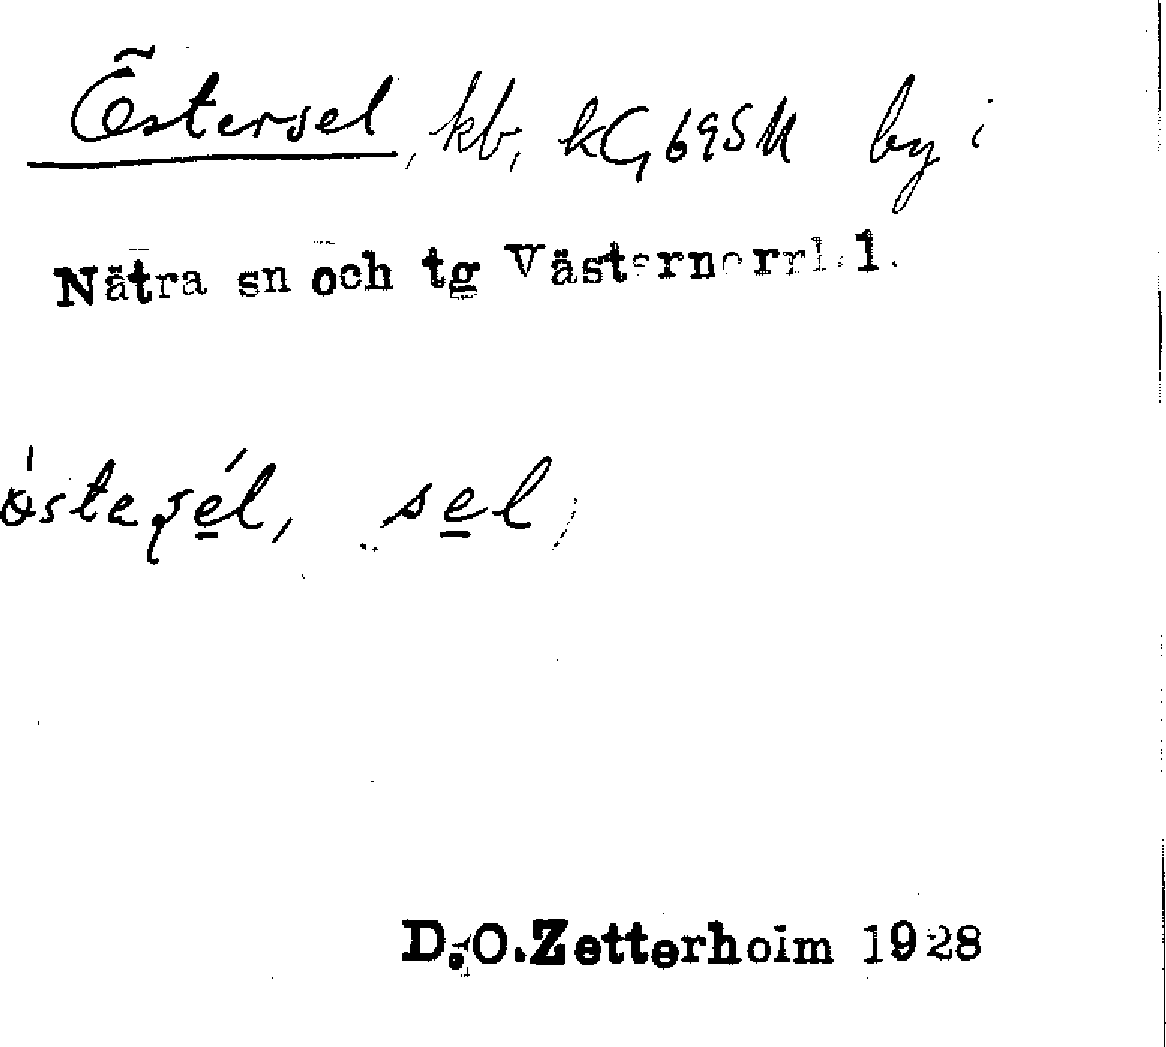 Östersel, kb, kG695M by i
Nätra sn och tg Västernorrl. l.
östaṣél, sel,
D.O.Zetterholm 1928